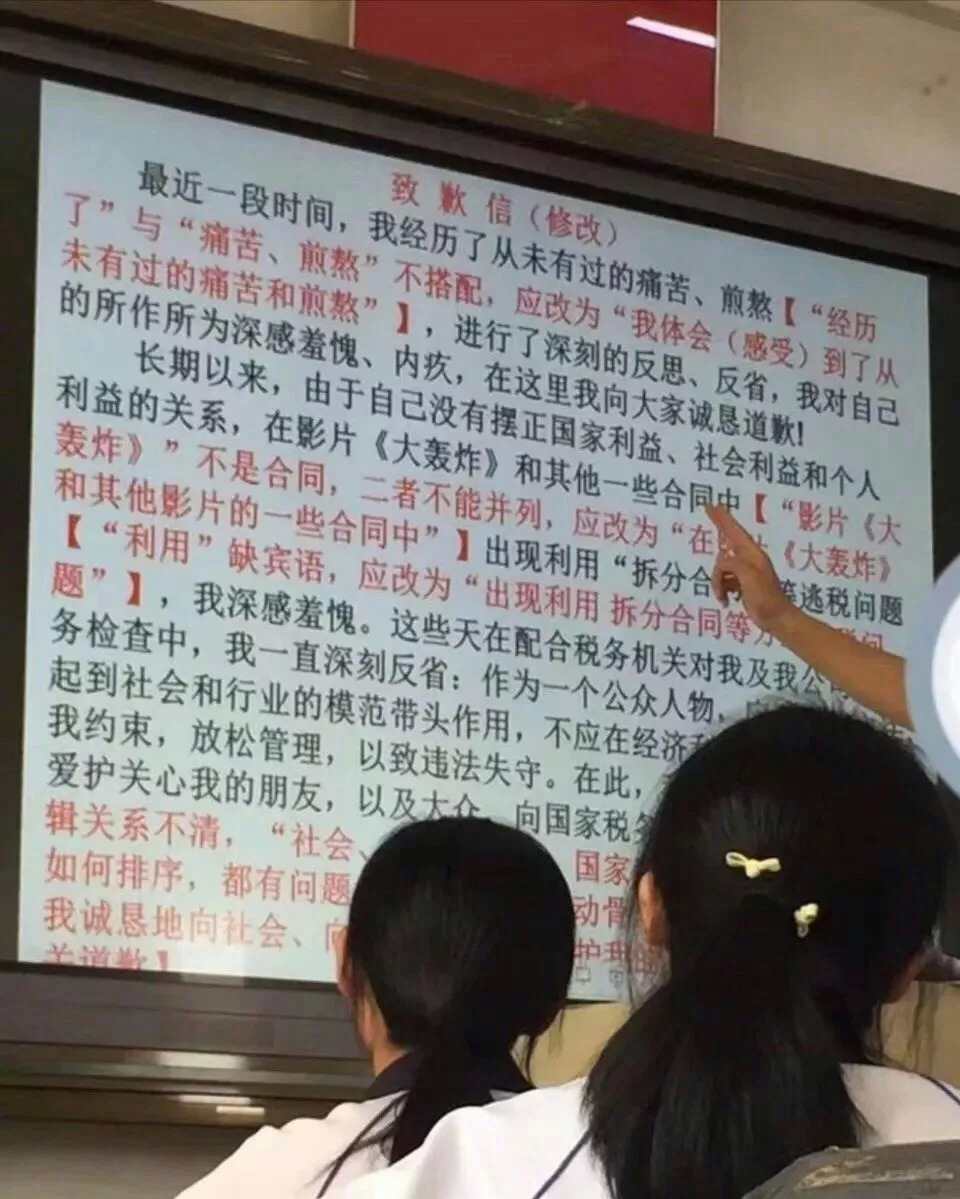 致歉信（修改）
最近一段时间，我经历了从未有过的痛苦、煎熬【“经历
了”与“痛苦、煎熬”不搭配，应改为“我体会（感受）到了从
未有过的痛苦和煎熬”】，进行了深刻的反思、反省，我对自己
的所作所为深感羞愧、内疚，在这里我向大家诚恳道歉！
长期以来，由于自己没有摆正国家利益、社会利益和个人
利益的关系，在影片《大轰炸》和其他一些合同中【“影片《大
轰炸》”不是合同，二者不能并列，应改为“在 《大轰炸》
和其他影片的一些合同中”】出现利用“拆分合 等逃税问题
【“利用”缺宾语，应改为“出现利用 拆分合同等
题”】，我深感羞愧。这些天在配合税务机关对我及我公
务检查中，我一直深刻反省：作为一个公众人物，
起到社会和行业的模范带头作用，不应在经济
我约束，放松管理，以致违法失守。在此，
爱护关心我的朋友，以及大众 向国家税务
辑关系不清，“社会、 国家
如何排序，都有问题
我诚恳地向社会、
关道歉】